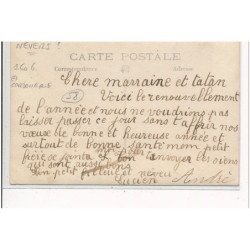 NEVERS !
CARTE POSTALE
Correspondance Adresse
58
Chere marraine et tatan
Voici le renouvellement
de l'année et nous ne voudrions pas
laisser passer ce jour sans t'offrir nos
vœux de bonne et heureuse année et
surtout de bonne santé mon petit
frère se joint a pour t'envoyer les siens
qui sont aussi bons
ton petit filleul et neveu
Lucien André